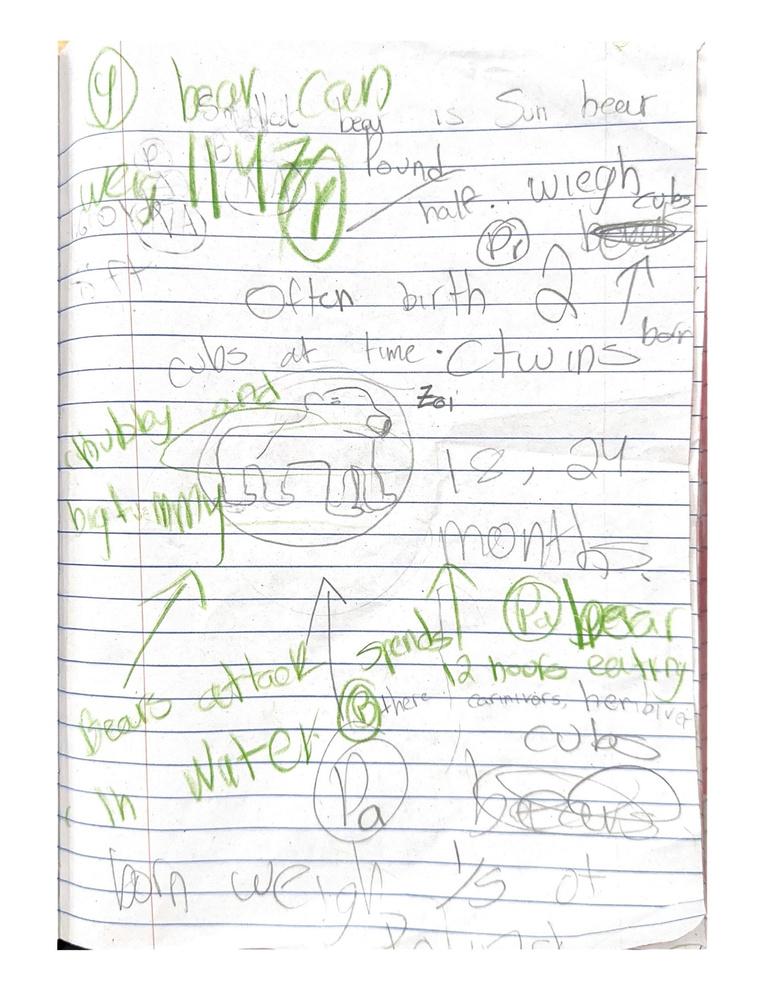 bear can
Smallest bear is Sun bear
wey 1147
Pound
half.. wiegh cubs
Pr
Often birth 2
born
cubs at time. (twins
chubby and
Zoi
18, 24
big tummy
months.
Pa bear
spends 12 hours eating
Bears attack
B there carinivors, herbiver
in water
cubs
Pa
bears
born weigh 1/5 of